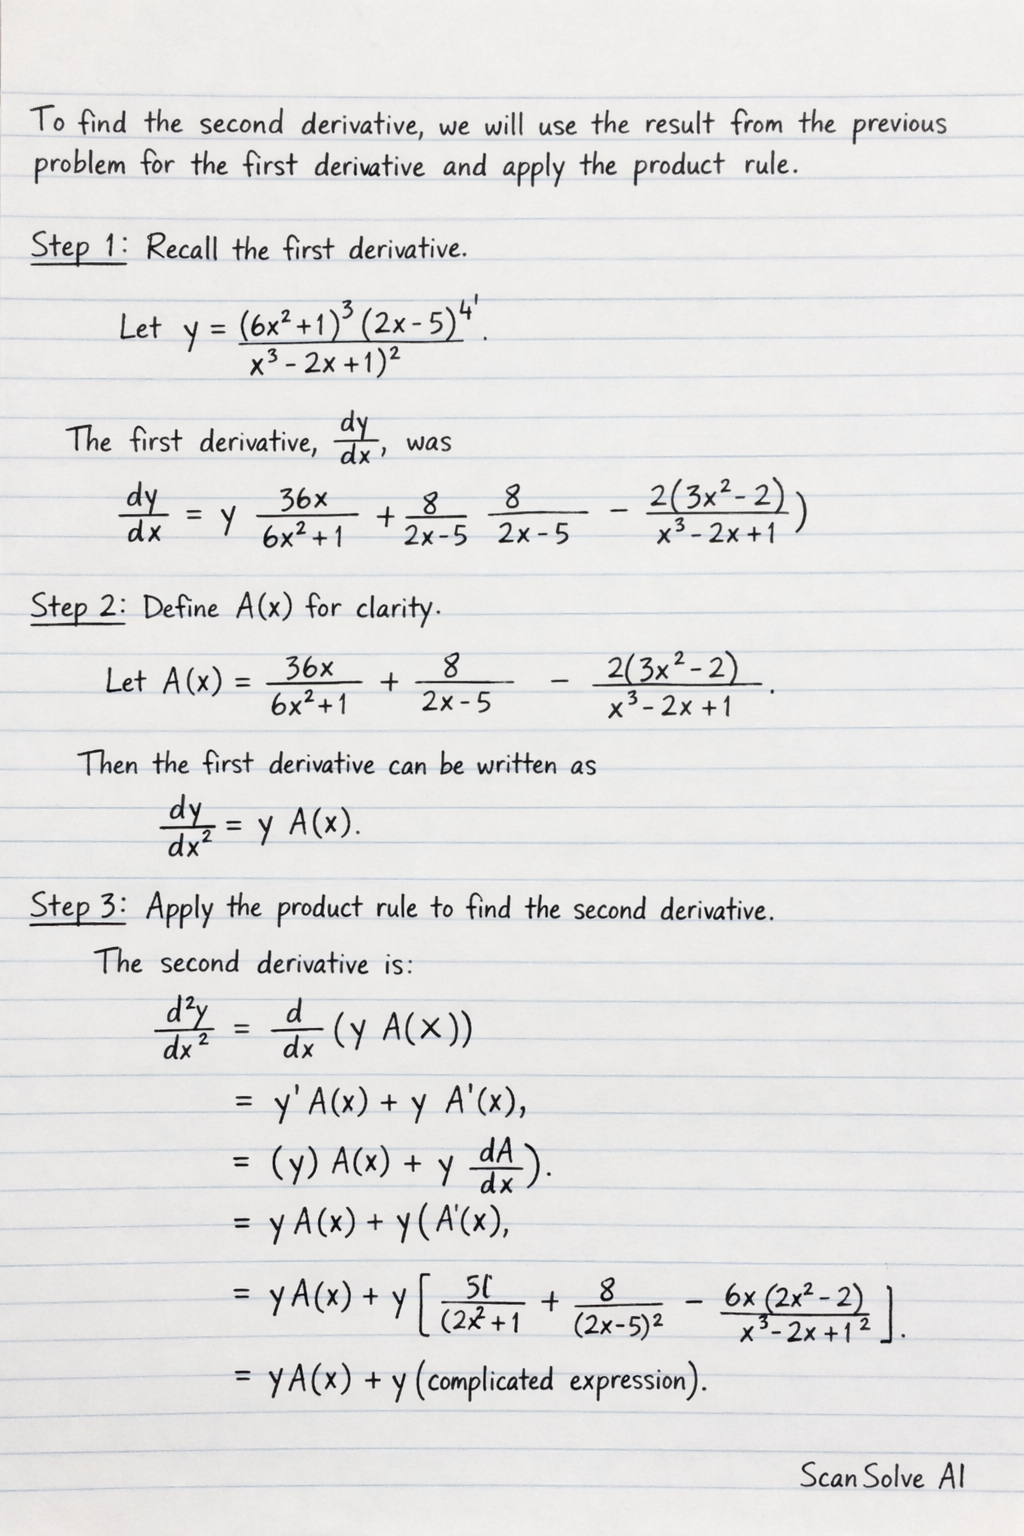 To find the second derivative, we will use the result from the previous
problem for the first derivative and apply the product rule.
Step 1: Recall the first derivative.
Let y = (6x²+1)³ (2x-5)⁴' / x³ - 2x +1)² .
The first derivative, dy/dx, was
dy/dx = y 36x/6x²+1 + 8/2x-5 8/2x-5 - 2(3x²-2)/x³-2x+1 )
Step 2: Define A(x) for clarity.
Let A(x) = 36x/6x²+1 + 8/2x-5 - 2(3x²-2)/x³-2x+1 .
Then the first derivative can be written as
dy/dx² = y A(x).
Step 3: Apply the product rule to find the second derivative.
The second derivative is:
d²y/dx² = d/dx (y A(x))
= y' A(x) + y A'(x),
= (y) A(x) + y dA/dx ).
= y A(x) + y ( A'(x),
= y A(x) + y [ 5(/(2x²+1 + 8/(2x-5)² - 6x (2x²-2)/x³-2x+1² ] .
= y A(x) + y (complicated expression).
ScanSolve AI